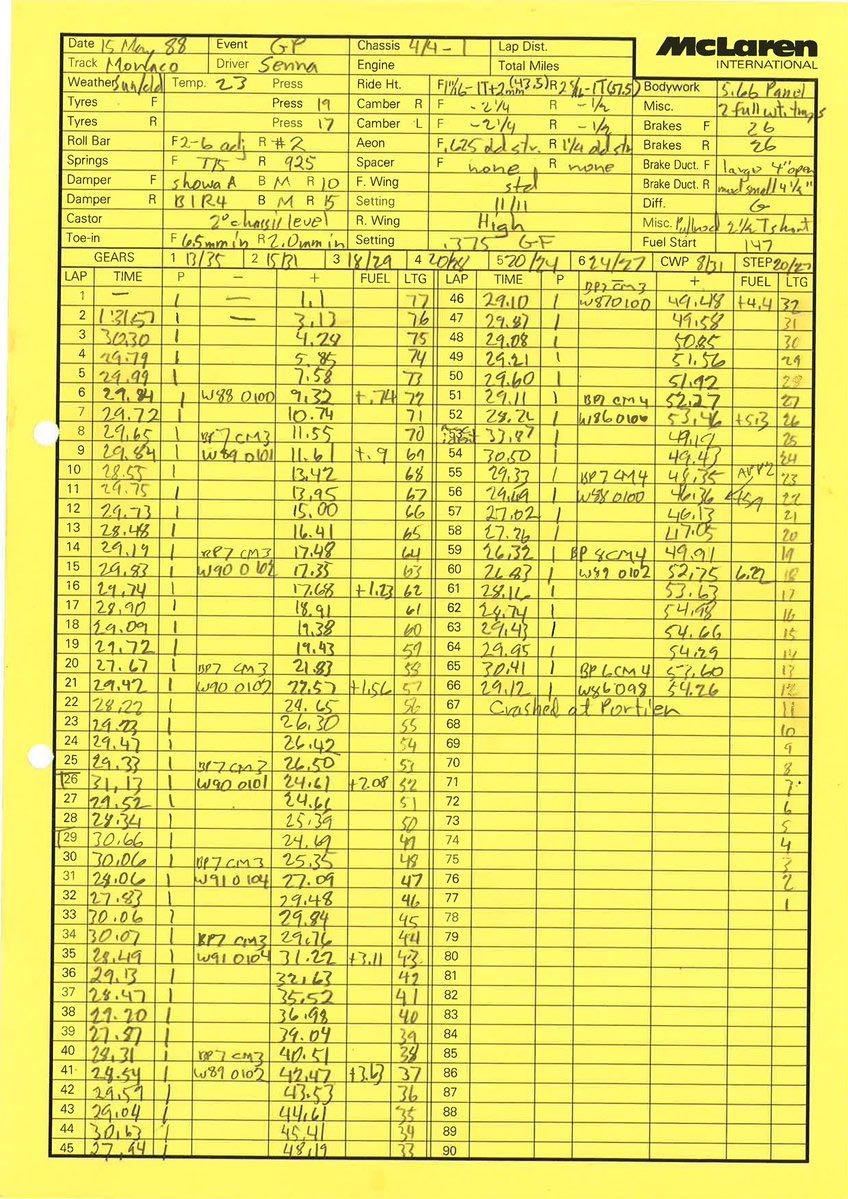 Date 15 May 88 Event GP Chassis 4/4-1 Lap Dist. McLaren
Track Monaco Driver Senna Engine Total Miles INTERNATIONAL
Weather Temp. 23 Press Ride Ht. Bodywork 5.66 Panel
Tyres F Press 19 Camber R F -2 1/4 R -1/2 Misc.
Tyres R Press 17 Camber L F -2 1/4 R -1/2 Brakes F 26
Roll Bar F 2-6 adj R #2 Aeon F .625 old str. R 1 1/4 old str Brakes R 26
Springs F T75 R 925 Spacer F none R none Brake Duct. F large 4" open
Damper F showa A B M R 10 F. Wing std Brake Duct. R mod small 4 1/2"
Damper R B1R4 B M R 15 Setting 11/11 Diff. G
Castor 2° chassis level R. Wing High Misc.
Toe-in F 6.5mm in R 2.0mm in Setting .375 GF Fuel Start 147
GEARS 1 13/35 2 15/31 3 18/29 4 5 20/24 6 24/27 CWP 8/31 STEP 20/27
LAP TIME P - + FUEL LTG LAP TIME P - + FUEL LTG
1 — 1 — 1.1 77 46 29.10 1 BP7 CM3 W87 0100 49.48 +4.4 32
2 1'31.57 1 — 3.13 76 47 29.87 1 49.58 31
3 30.30 1 4.24 75 48 29.08 1 50.85 30
4 29.79 1 5.85 74 49 29.21 1 51.56 29
5 29.99 1 7.58 73 50 29.60 1 51.92 28
6 29.84 1 W88 0100 9.32 +.74 72 51 29.11 1 BP7 CM4 52.27 27
7 29.72 1 10.74 71 52 28.26 1 W86 0100 53.46 +5.3 26
8 29.65 1 BP7 CM3 11.55 70 33.87 1 49.19 25
9 29.84 1 W89 0101 11.61 +.9 69 54 30.50 1 49.43 24
10 28.55 1 13.42 68 55 29.33 1 BP7 CM4 48.35 23
11 29.75 1 13.95 67 56 29.69 1 W88 0100 46.36 22
12 29.73 1 15.00 66 57 27.02 1 46.13 21
13 28.48 1 16.41 65 58 27.26 1 47.05 20
14 29.19 1 BP7 CM3 17.48 64 59 26.32 1 BP8 CM4 49.91 19
15 29.83 1 W90 0102 17.35 63 60 26.83 1 W89 0102 52.75 6.22 18
16 29.74 1 17.68 +1.23 62 61 28.16 1 53.63 17
17 28.90 1 18.91 61 62 28.74 1 54.98 16
18 29.09 1 19.38 60 63 29.43 1 54.66 15
19 29.72 1 19.43 59 64 29.95 1 54.29 14
20 27.67 1 BP7 CM3 21.83 58 65 30.41 1 BP6 CM4 53.60 13
21 29.42 1 W90 0102 22.57 +1.56 57 66 29.12 1 W86 098 54.26 12
22 28.22 1 24.65 56 67 Crashed at Portier 11
23 29.23 1 26.30 55 68 10
24 29.47 1 26.42 54 69 9
25 29.33 1 BP7 CM3 26.50 53 70 8
26 31.13 1 W90 0101 24.61 +2.08 52 71 7
27 29.52 1 24.61 51 72 6
28 28.34 1 25.39 50 73 5
29 30.66 1 24.69 49 74 4
30 30.06 1 BP7 CM3 25.35 48 75 3
31 28.06 1 W91 0104 27.09 47 76 2
32 27.83 1 29.48 46 77 1
33 30.06 1 29.84 45 78
34 30.07 1 BP7 CM3 29.76 44 79
35 28.49 1 W91 0104 31.22 +3.11 43 80
36 29.13 1 32.63 42 81
37 28.47 1 35.52 41 82
38 29.20 1 36.98 40 83
39 27.87 1 39.04 39 84
40 28.31 1 BP7 CM3 40.51 38 85
41 28.54 1 W89 0102 42.47 +3.63 37 86
42 29.59 1 43.53 36 87
43 29.04 1 44.61 35 88
44 30.63 1 45.41 34 89
45 27.94 1 48.19 33 90